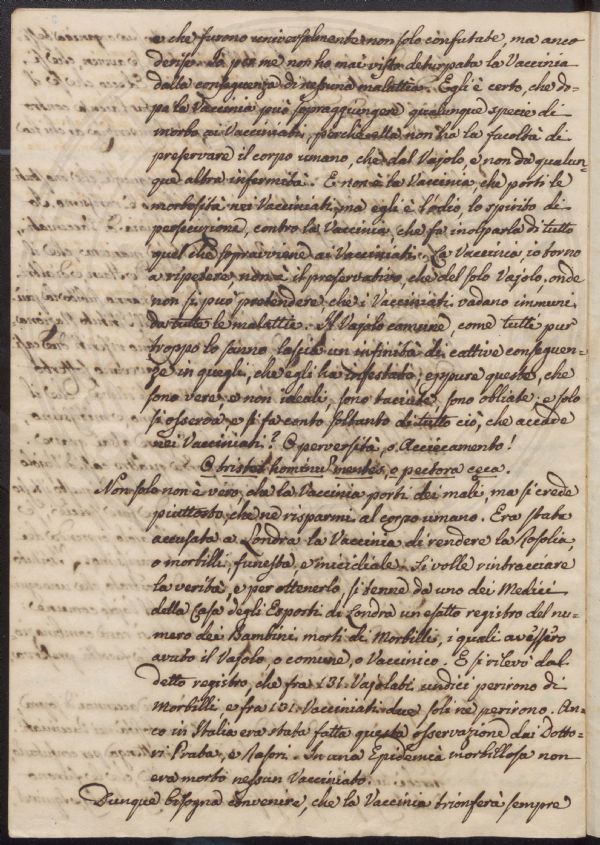 e che furono universalmente non solo confutate, ma anco
derise. Io per me non ho mai vista deturpata la Vaccinia
dalla conseguenza di nessuna malattia. Egli è certo, che do-
po la Vaccinia può sopraggiungere qualunque specie di
morbo ai Vaccinati, perchè ella non ha la facoltà di
preservare il corpo umano, che dal Vajolo, e non da qualun-
que altra infermità. E non è la Vaccinia, che porti le
morbosità nei Vaccinati, ma egli è l'odio, lo spirito di
persecuzione, contro la Vaccinia, che fa incolparla di tutto
quel che sopravviene ai Vacciniati. La Vaccinia, io torno
a ripetere, non è il preservativo, che del solo Vajolo, onde
non si può pretendere che i Vacciniati vadano immuni
da tutte le malattie. Il Vajolo comune, come tutti pur
troppo lo sanno lascia un infinità di cattive conseguen-
ze in quegli, che egli ha infestato; eppure queste, che
sono vere, e non ideali, sono taciute, sono obliate; e solo
si osserva, e si fa conto soltanto di tutto ciò, che accade
nei Vacciniati? O perversità, o Acciecamento!
O tristes hominum mentes, o pectora ceca.
Non solo non è vero, che la Vaccinia porti dei mali, ma si crede
piuttosto, che ne risparmi al corpo umano. Era stata
accusata a Londra la Vaccinia di rendere la Rosolia,
o morbilli, funesta, e micidiale. Si volle rintracciare
la verità, e per ottenerlo, si tenne da uno dei Medici
della Casa degli Esposti di Londra un esatto registro del nu-
mero dei Bambini morti di Morbilli, i quali avessero
avuto il Vajolo, o comune, o Vaccinico. E si rilevò dal
detto registro, che fra 131. Vajolati undici perirono di
Morbilli e fra 131. Vacciniati due soli ne perirono. An-
co in Italia era stata fatta questa osservazione dai Dotto-
ri Prata, e Rasori. In una Epidemia morbillosa non
era morto nessun Vacciniato.
Dunque bisogna convenire, che la Vaccinia trionferà sempre